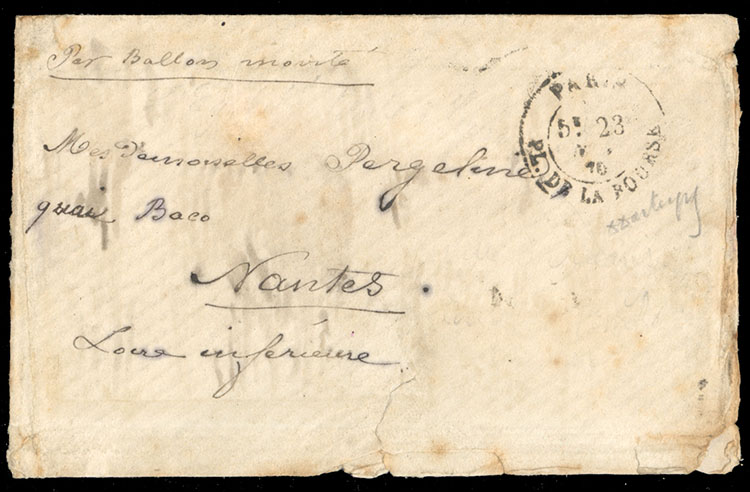 Par Ballon monté
PARIS
5E 23
N
70
PL. DE LA BOURSE
Mesdemoiselles Pergeline
quai Baco
Nantes
Loire inférieure